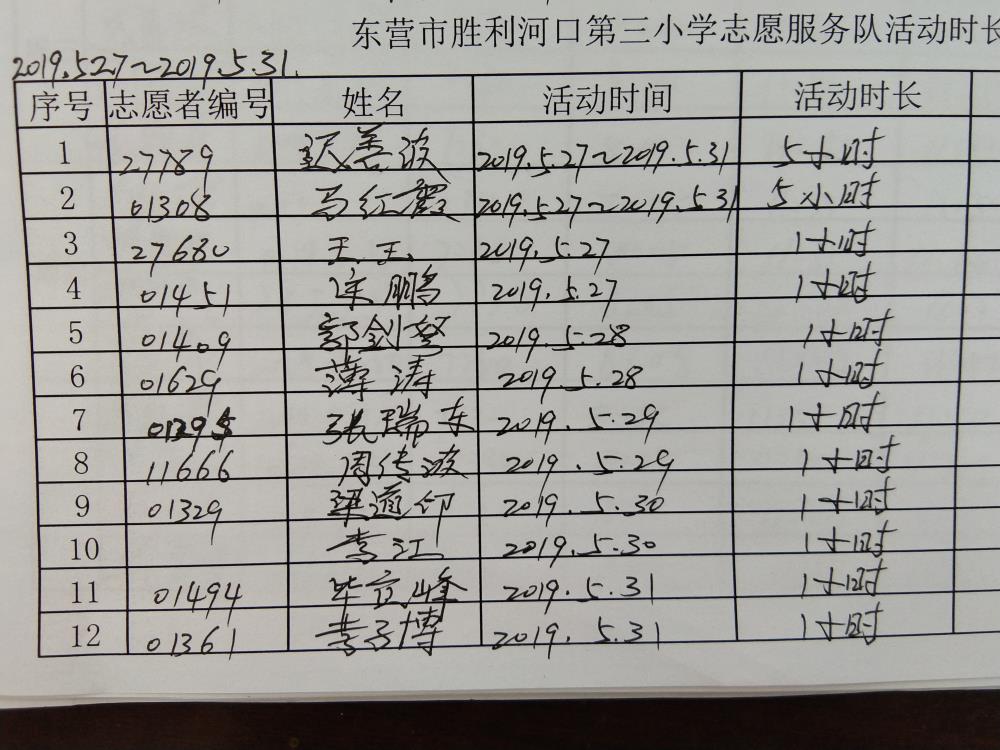 东营市胜利河口第三小学志愿服务队活动时长
2019.5.27~2019.5.31.
序号 志愿者编号 姓名 活动时间 活动时长
1 27789 善波 2019.5.27~2019.5.31 5小时
2 01308 马红霞 2019.5.27~2019.5.31 5小时
3 27680 王王 2019.5.27 1小时
4 01451 徐鹏 2019.5.27 1小时
5 01409 郭剑 2019.5.28 1小时
6 01629 薄涛 2019.5.28 1小时
7 01295 张瑞东 2019.5.29 1小时
8 11666 周传波 2019.5.29 1小时
9 01329 道 2019.5.30 1小时
10 李江 2019.5.30 1小时
11 01494 毕立峰 2019.5.31 1小时
12 01361 李子博 2019.5.31 1小时